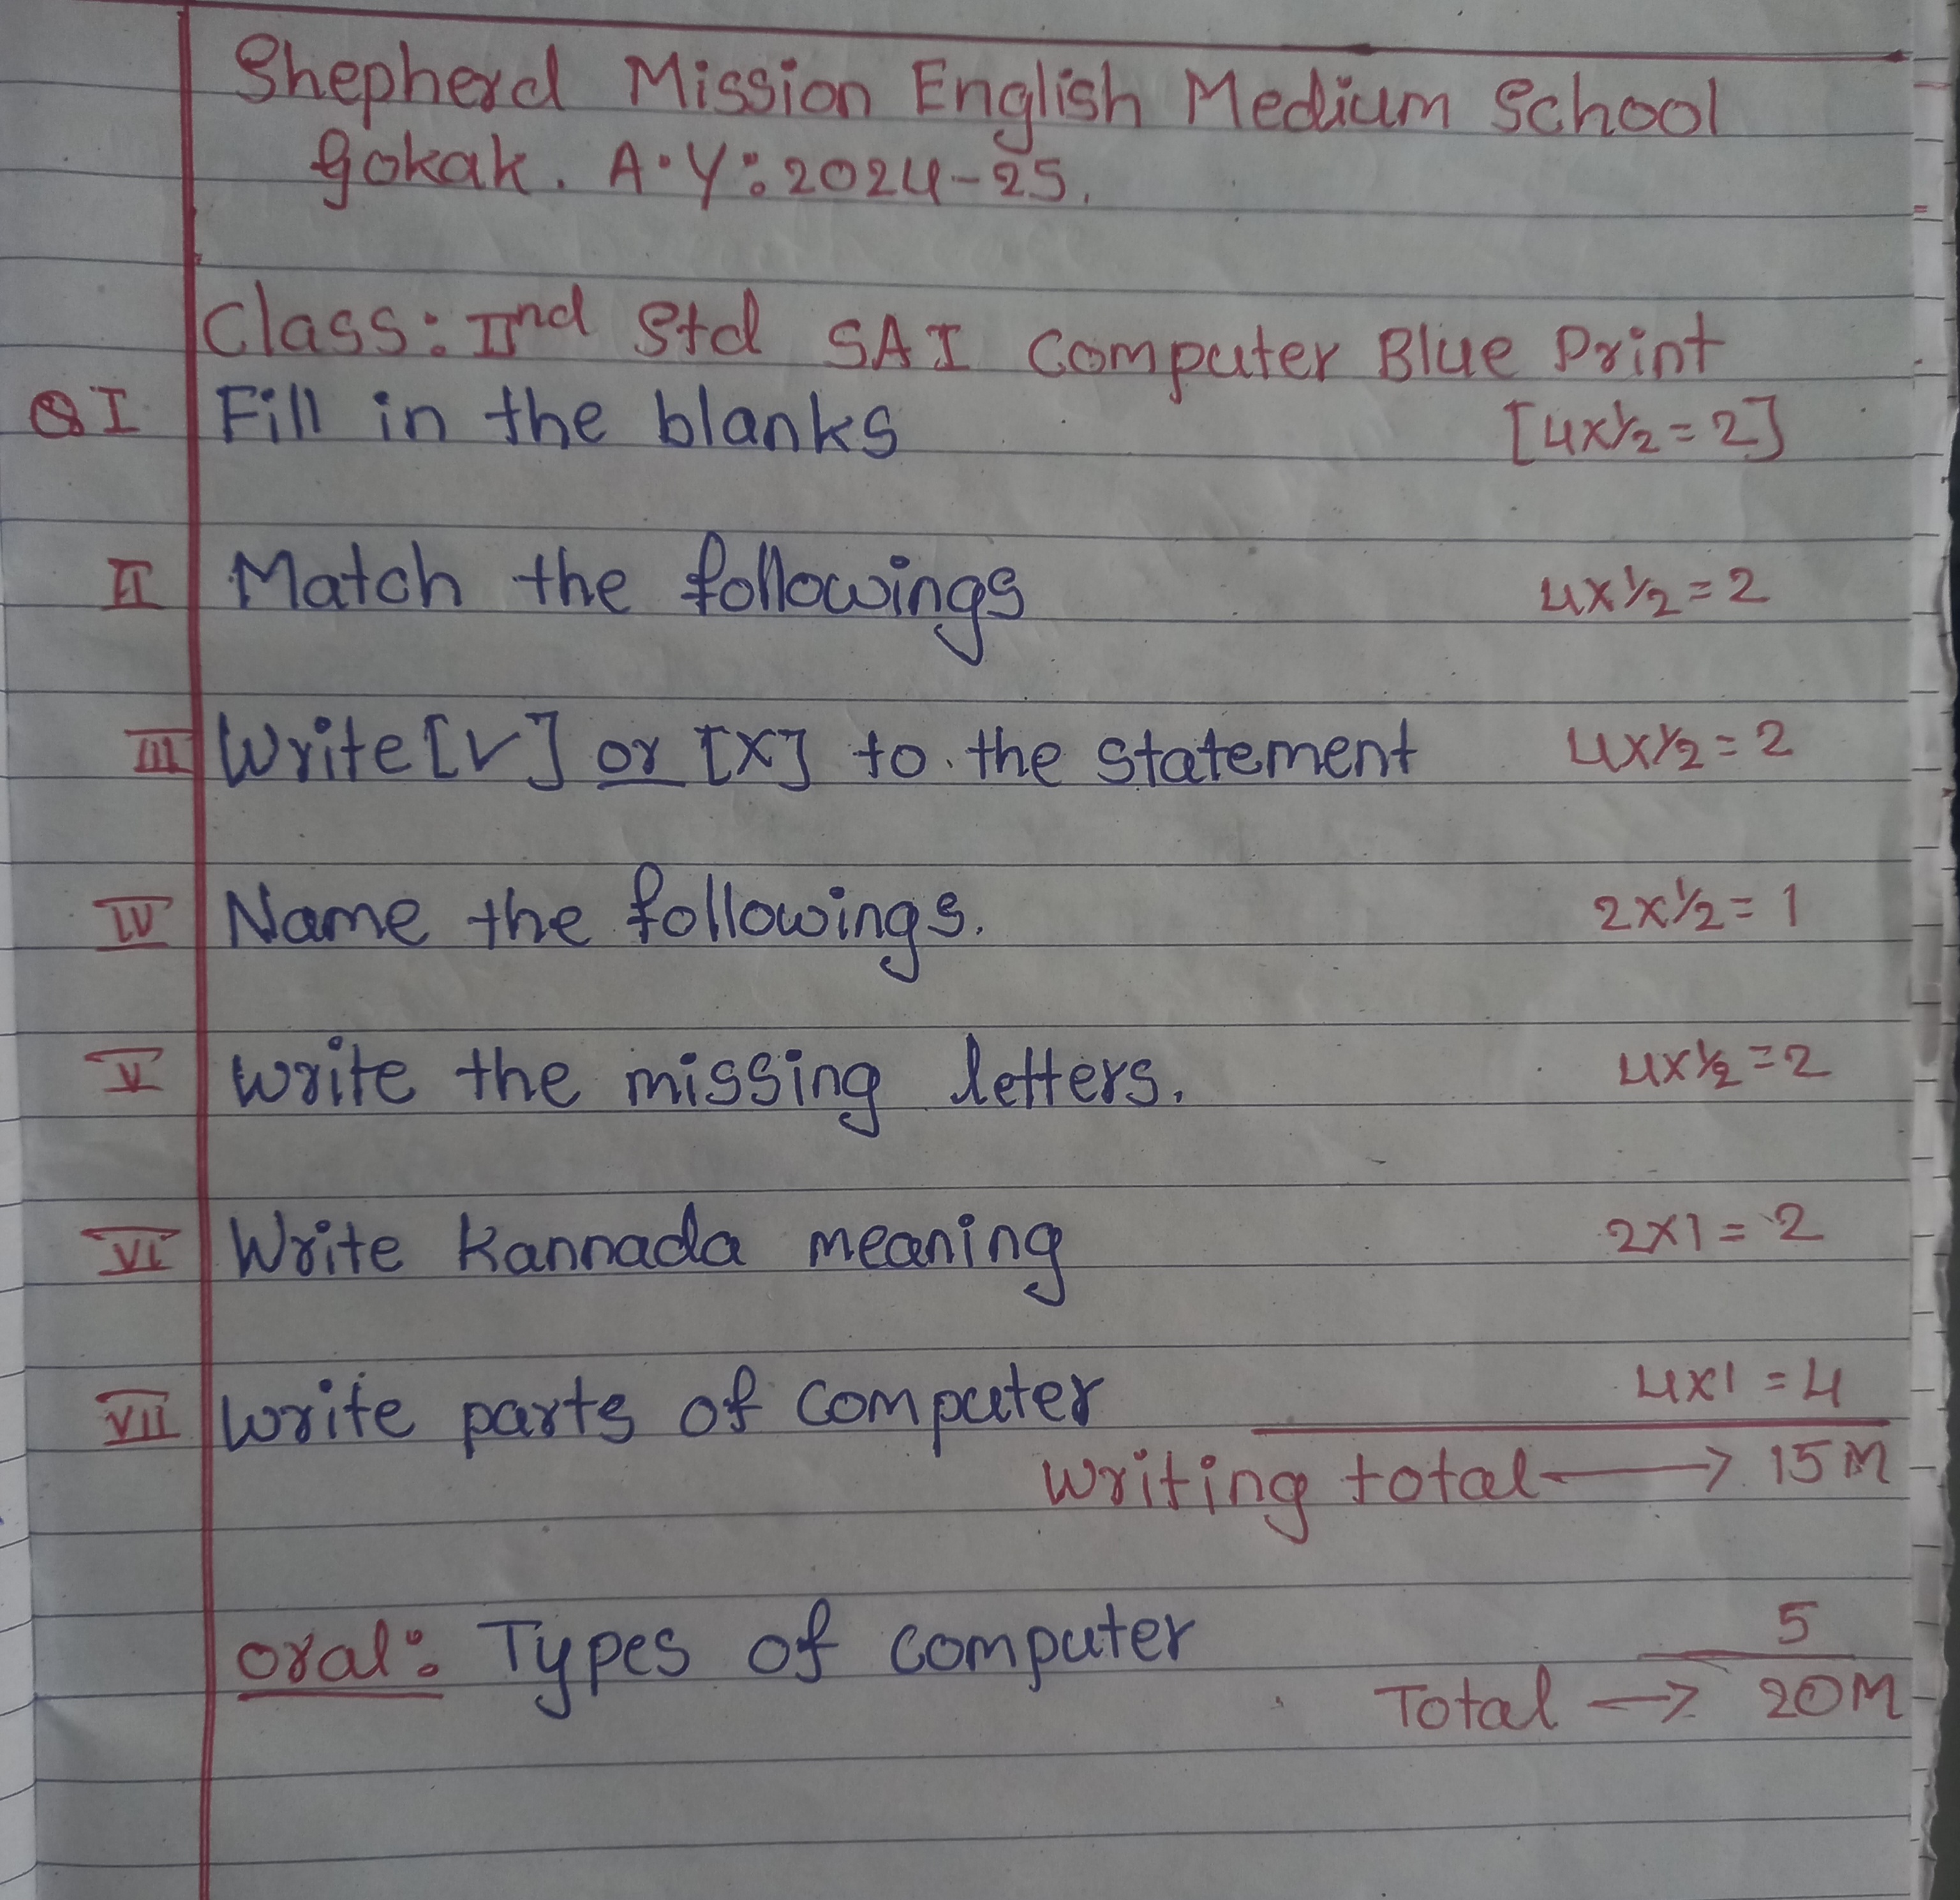 Shepherd Mission English Medium School
Gokak. A.Y: 2024-25.
Class: IInd Std SA I Computer Blue Print
Q I Fill in the blanks [4x1/2=2]
II Match the followings 4x1/2=2
III Write [✓] or [X] to the statement 4x1/2=2
IV Name the followings. 2x1/2=1
V Write the missing letters. 4x1/2=2
VI Write Kannada meaning 2x1=2
VII Write parts of computer 4x1=4
Writing total → 15M
Oral: Types of computer 5
Total → 20M